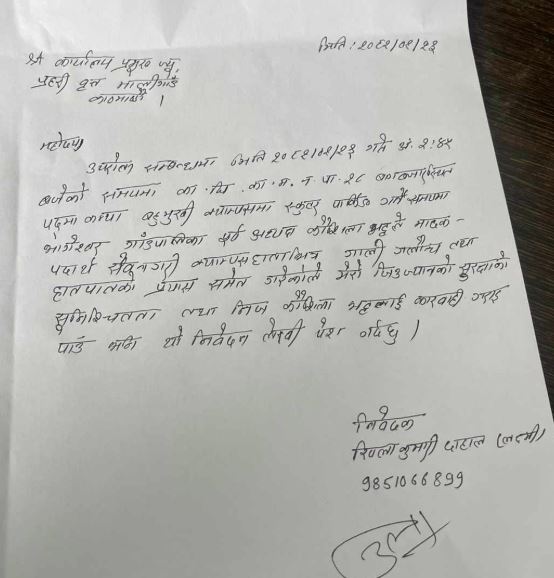 मिति : २०८२/०२/२३
श्री कार्यालय प्रमुख ज्यू,
प्रहरी वृत्त मालीगाउँ
काठमाडौं ।
महोदय,
उपरोक्त सम्बन्धमा मिति २०८२/०२/२३ गते अं. २:४५
बजेको समयमा का. जि. का. म. न. पा. २८ स्थित
पद्म कन्या बहुमुखी क्याम्पसमा स्कुटर पार्किङ गर्ने समयमा
गाउँपालिका पूर्व अध्यक्ष कौशिला भट्टले मादक -
पदार्थ सेवन गरी क्याम्पस हाताभित्र गाली गलौच तथा
हातपातको प्रयास समेत गरेकोले मेरो जिउज्यानको सुरक्षाको
सुनिश्चितता तथा निज कौशिला भट्टलाई कारवाही गराई
पाउँ भनि यो निवेदन लेखी पेश गर्दछु ।
निवेदक
कुमारी दाहाल (लक्ष्मी)
9851066899